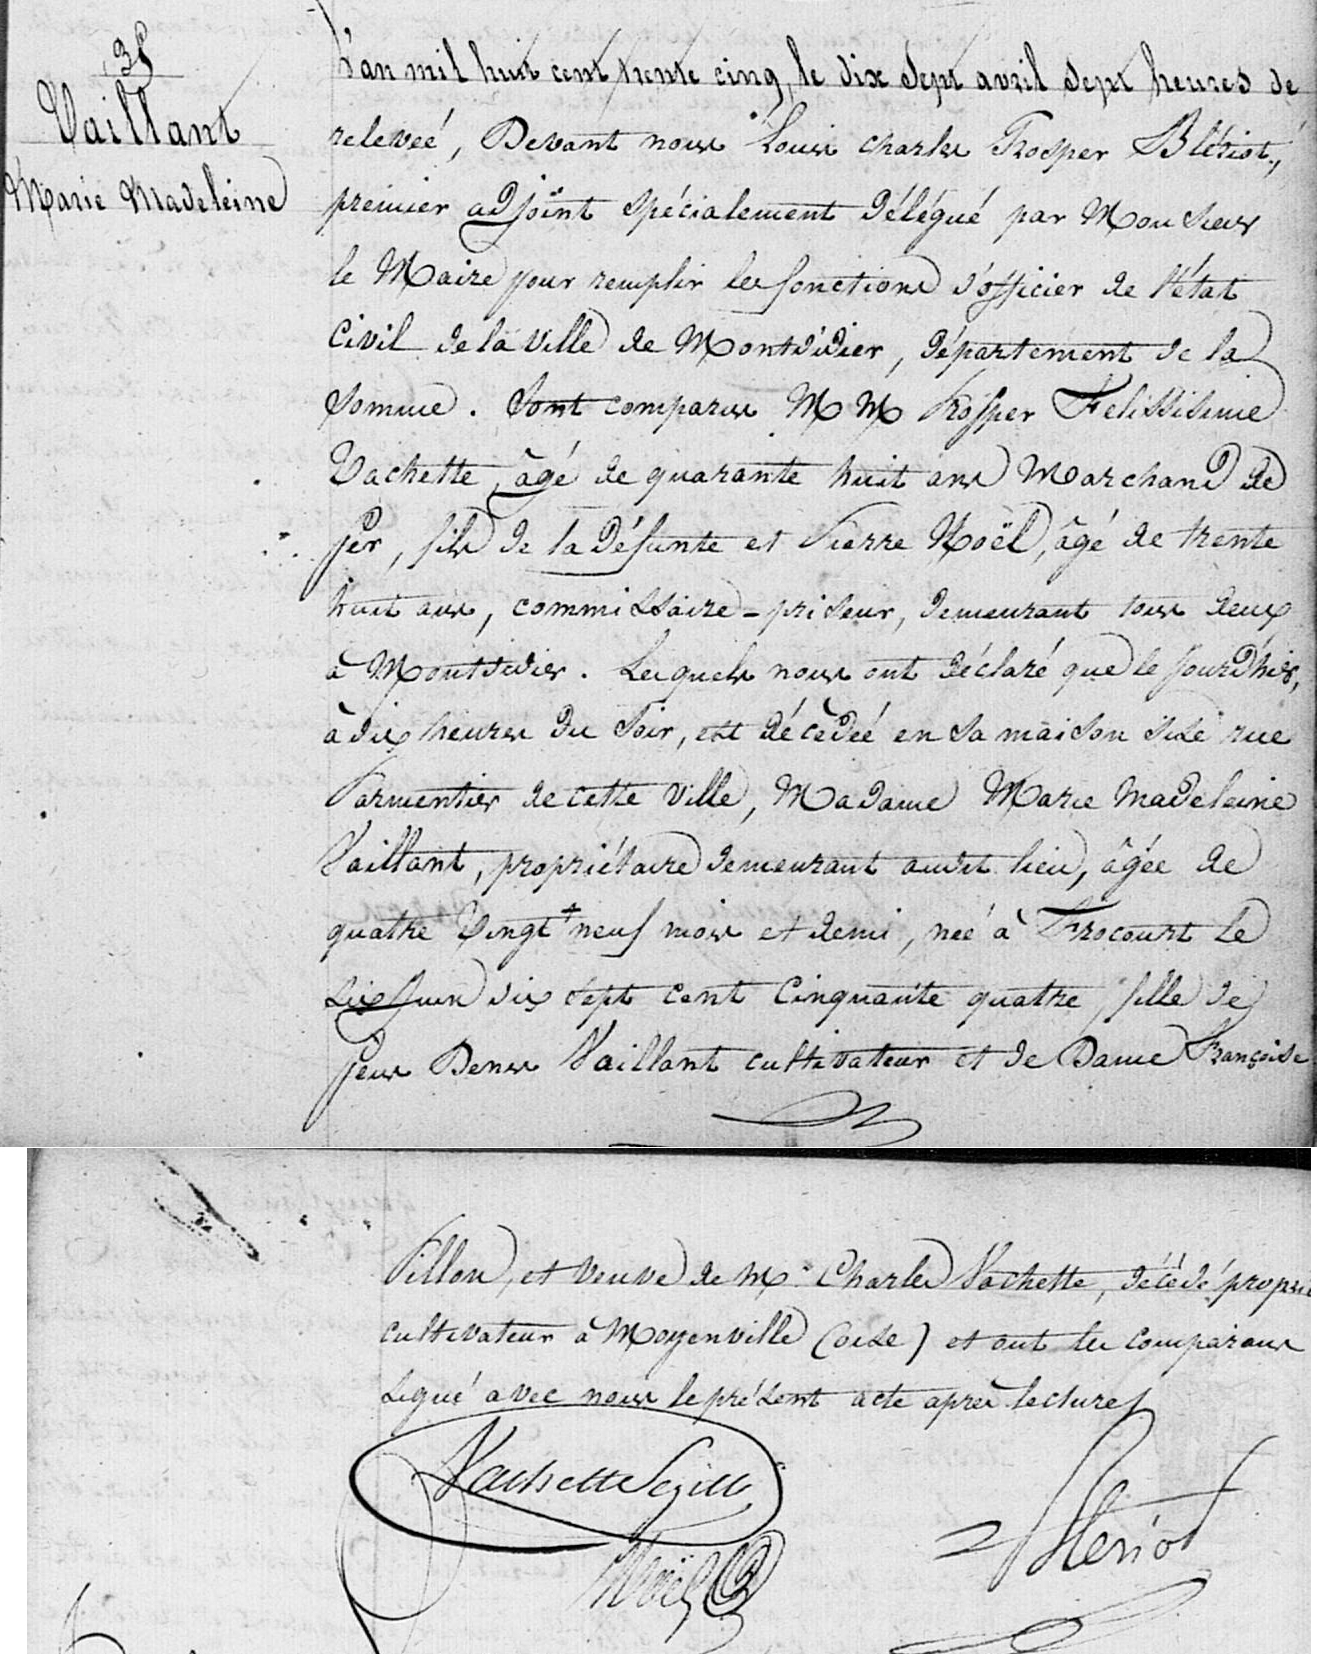 38
Vaillant
Marie Madeleine
L'an mil huit cent trente cinq, le dix sept avril sept heures de
relevéé, Devant nous Louis charles Prosper Blériot,
premier adjoint spécialement délégué par Monsieur
le Maire pour remplir les fonctions d'officier de l'état
Civil de la ville de Montdidier, département de la
Somme. Sont comparus M M Prosper Felissisime
Vachette, âgé de quarante huit ans Marchand de
fer, fils de la défunte et Pierre Noël, âgé de trente
huit ans, commissaire-priseur, demeurant tous deux
à Montdidier. Lesquels nous ont déclaré que le jourd'hier,
à dix heures du soir, est décédéé en sa maison sise rue
Parmentier de cette ville, Madame Marie Madeleine
Vaillant, propriétaire demeurant audit lieu, âgée de
quatre vingt neuf mois et demi, néé à Frocourt le
six Juin dix sept cent cinquante quatre, fille de
feux Denis Vaillant cultivateur et de Dame Françoise
Pillon, et veuve de Mr Charles Vachette, décédé propre
cultivateur à Moyenville (oise) et ont les comparans
signé avec nous le présent acte après lecture
Vachette Segill
Noël
Blériot